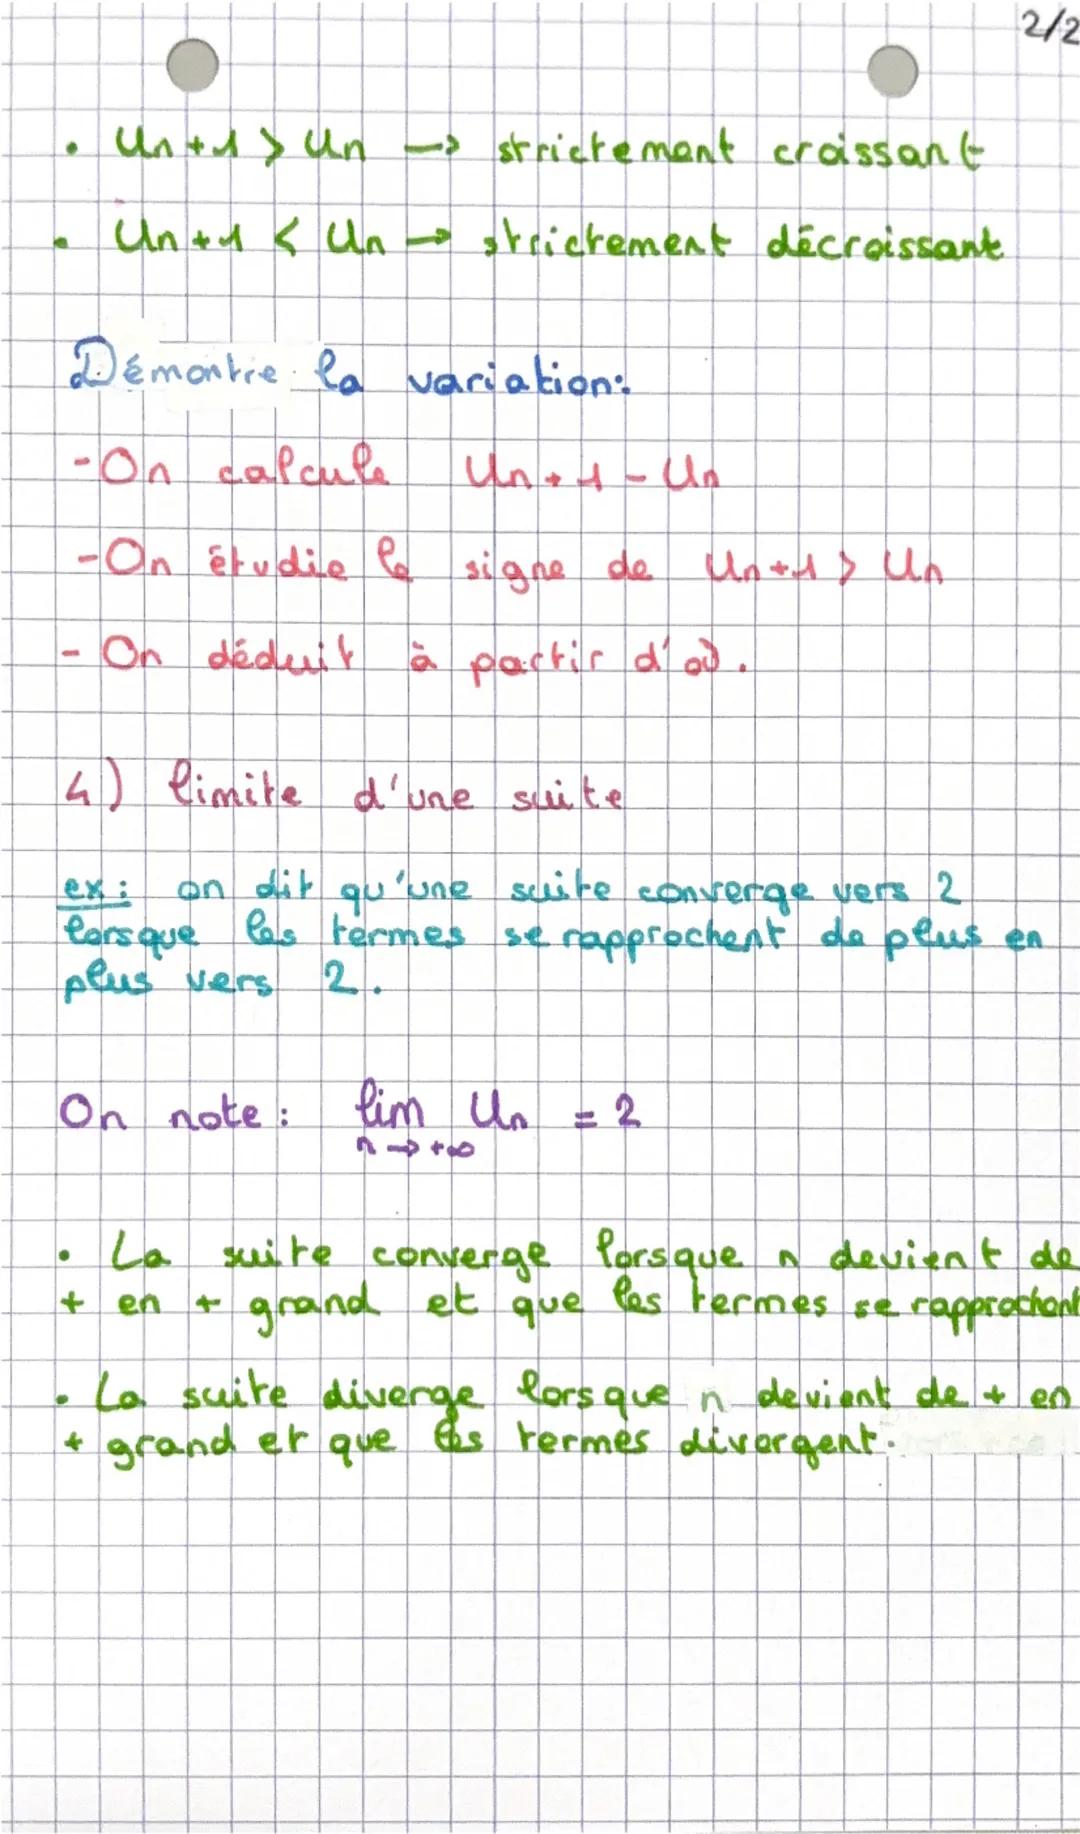 2/2
• Un+1 > Un → strictement croissant
• Un+1 < Un → strictement décroissant
Démontre la variation:
- On calcule Un+1 - Un
- On étudie le signe de Un+1 > Un
- On déduit à partir d'où.
4) limite d'une suite
ex: on dit qu'une suite converge vers 2
lorsque les termes se rapprochent de plus en
plus vers 2.
On note: lim Un = 2
n → +∞
• La suite converge lorsque n devient de
+ en + grand et que les termes se rapprochent
• La suite diverge lorsque n devient de + en
+ grand et que les termes divergent.